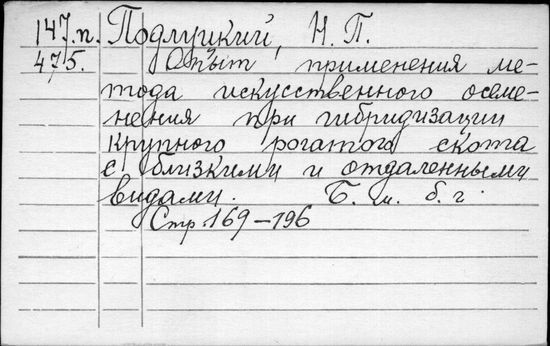 147.п. Подлуцкий, Н. П.
475. Опыт применения ме-
тода искусственного осеме-
нения при гибридизации
крупного рогатого скота
с близкими и отдаленными
видами. Б. м. б. г.
Стр. 169-196